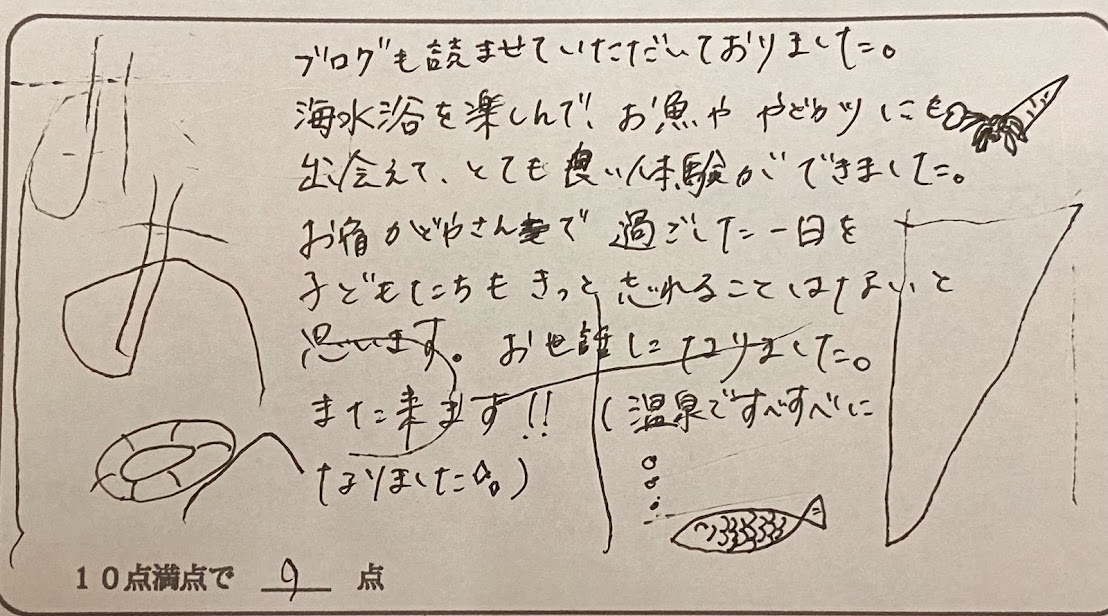 ブログも読ませていただいておりました。
海水浴を楽しんで、お魚や やどかりにも
出会えて、とても良い体験ができました。
お宿かどやさんで 過ごした一日を
子どもたちもきっと忘れることはないと
思います。お世話になりました。
また来ます!!（温泉ですべすべに
なりました。）
10点満点で 9 点